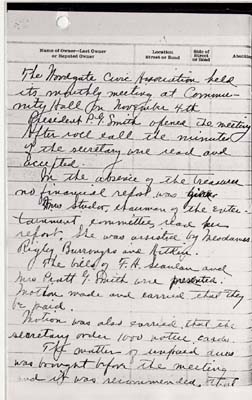 Name of Owner—Last Owner
or Reputed Owner
Location
Street or Road
Side of
Street
or Road
The Woodgate Civic Association held
its monthly meeting at Commu-
nity Hall on November 4th
President P. G. Smith opened the meeting
After roll call the minutes
of the secretary were read and
accepted.
In the absence of the treasurer
no financial report was given
Mrs Studor, chairman of the enter
tainment committee, read her
report. She was assisted by Mesdames
Rigley Burroughs and
The bills of F. H. Scanlan and
Mrs Pratt G. Smith were presented.
Motion made and carried that they
be paid.
Motion was also carried that the
secretary order 1000 notice cards.
The matter of unpaid dues
was brought before the meeting
and it was recommended that